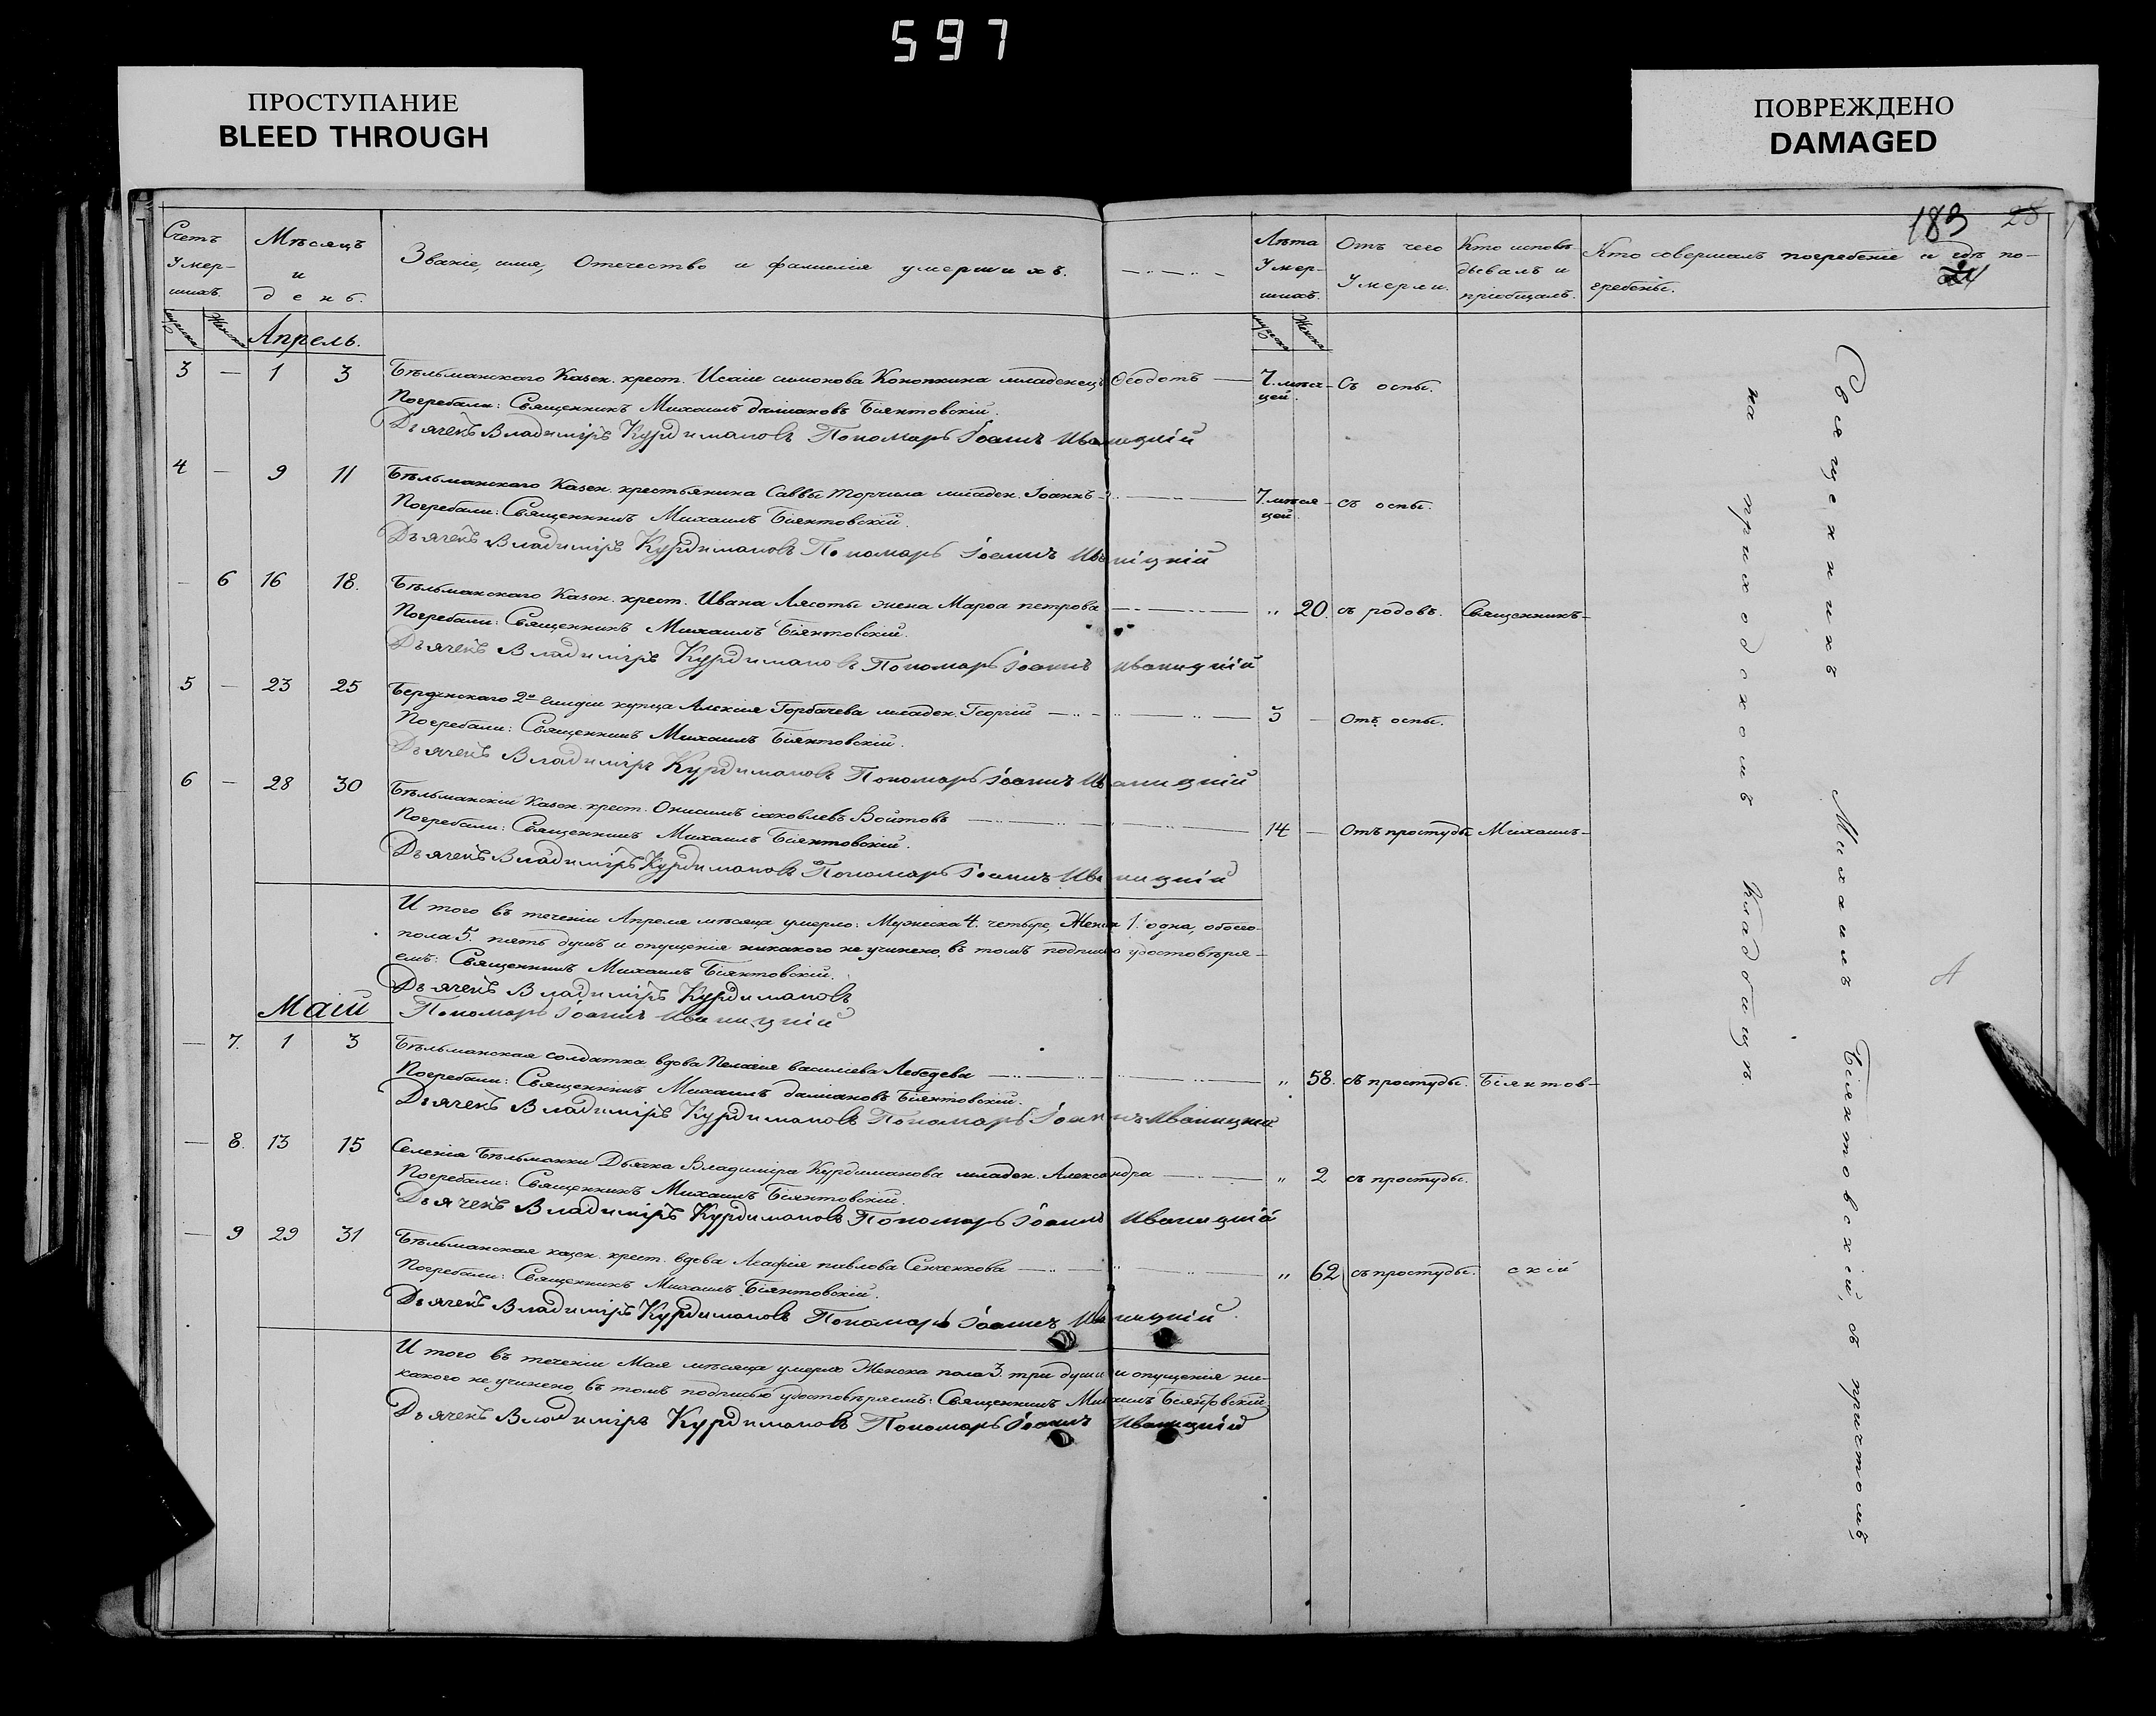 597
ПРОСТУПАНИЕ
BLEED THROUGH
ПОВРЕЖДЕНО
DAMAGED
183 25
Счетъ умершихъ.
Мѣсяцъ и день.
Званіе, имя, Отечество и фамилія умершихъ.
Лѣта умершихъ.
Отъ чего умерли.
Кто исповѣдывалъ и пріобщалъ.
Кто совершалъ погребеніе и гдѣ погребены.
Апрель.
3 — 1 3 Бѣльманскаго Казен. крест. Исаіи симонова Конопкина младенецъ Ѳеодотъ — 7. мѣсяцей. Съ оспы.
Погребали: Священникъ Михаилъ даміановъ Біянтовскій.
Дьячекъ Владиміръ Курдимановъ Пономарь Іоаннъ Иваницкій
4 — 9 11 Бѣльманскаго Казен. крестьянина Саввы Торчила младен. Іоаннъ — 7. мѣсяцей. съ оспы.
Погребали: Священникъ Михаилъ Біянтовскій.
Дьячекъ Владиміръ Курдимановъ Пономарь Іоаннъ Иваницкій
— 6 16 18. Бѣльманскаго Казен. крест. Ивана Лясоты жена Марѳа петрова — „ 20. съ родовъ. Священникъ
Погребали: Священникъ Михаилъ Біянтовскій.
Дьячекъ Владиміръ Курдимановъ Пономарь Іоаннъ Иваницкій
5 — 23 25 Бердянскаго 2й гилдіи купца Алексія Горбачева младен. Георгій — 3 — Отъ оспы.
Погребали: Священникъ Михаилъ Біянтовскій.
Дьячекъ Владиміръ Курдимановъ Пономарь Іоаннъ Иваницкій
6 — 28 30 Бѣльманскій Казен. крест. Онисимъ іаковлевъ Войтовъ — 14 — Отъ простуды Михаилъ
Погребали: Священникъ Михаилъ Біянтовскій.
Дьячекъ Владиміръ Курдимановъ Пономарь Іоаннъ Иваницкій
Итого въ теченіи Апреля мѣсяца умерло: Мужеска 4. четыре, Женска 1. одна, обоего
пола 5. пять душъ и опущенія никакого не учинено, въ томъ подписью удостовѣря-
емъ: Священникъ Михаилъ Біянтовскій.
Дьячекъ Владиміръ Курдимановъ
Пономарь Іоаннъ Иваницкій
Маій
— 7. 1 3 Бѣльманская солдатка вдова Пелагія василіева Лебедева — „ 58. съ простуды. Біянтов-
Погребали: Священникъ Михаилъ даміановъ Біянтовскій.
Дьячекъ Владиміръ Курдимановъ Пономарь Іоаннъ Иваницкій
— 8. 13 15 Селенія Бѣльманки Дьячка Владиміра Курдиманова младен. Александра — „ 2 съ простуды.
Погребали: Священникъ Михаилъ Біянтовскій.
Дьячекъ Владиміръ Курдимановъ Пономарь Іоаннъ Иваницкій
— 9 29 31 Бѣльманская казен. крест. вдова Агафія павлова Сенченкова — „ 62 съ простуды. скій
Погребали: Священникъ Михаилъ Біянтовскій.
Дьячекъ Владиміръ Курдимановъ Пономарь Іоаннъ Иваницкій.
Итого въ теченіи Мая мѣсяца умерло Женска пола 3. три души и опущенія ни-
какого не учинено, въ томъ подписью удостовѣряемъ: Священникъ Михаилъ Біянтовскій
Дьячекъ Владиміръ Курдимановъ Пономарь Іоаннъ Иваницкій
Священникъ Михаилъ Біянтовскій, съ причтомъ
на приходскомъ кладбищѣ